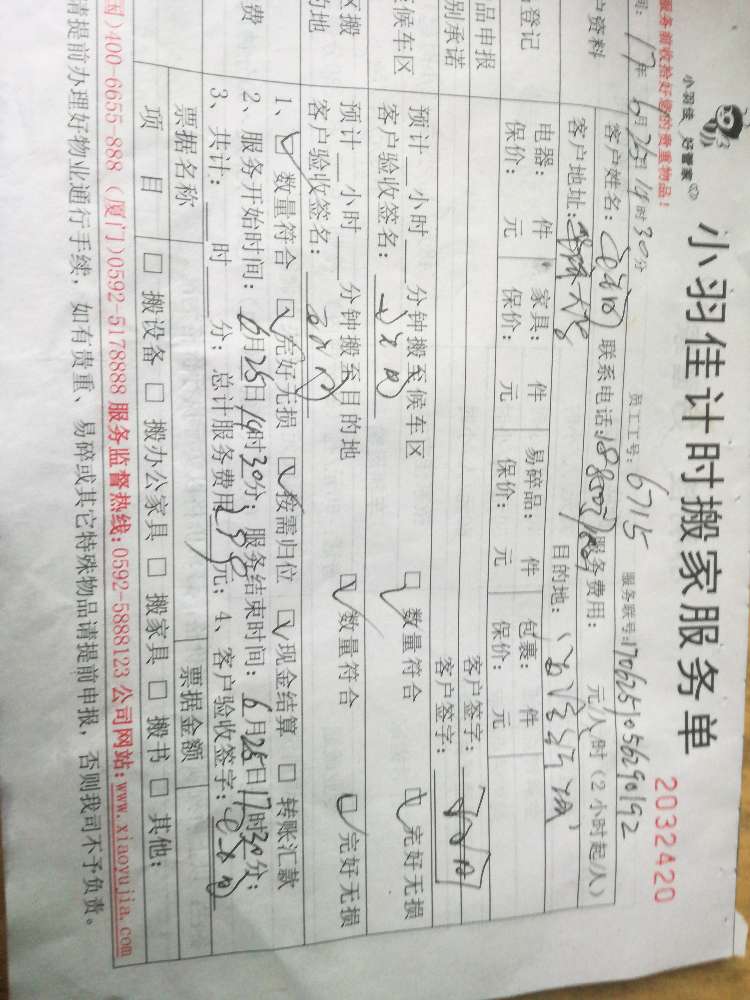 小羽佳 好管家
小羽佳计时搬家服务单
2032420
服务前收拾好您的贵重物品!
员工工号: 6715 服务联号: 1706251056290192
间: 17年6月25日14时30分
户资料
客户姓名: 联系电话: 服务费用: 元/人/时 (2小时起/人)
客户地址: 目的地:
登记
电器: 件 家具: 件 易碎品: 件 包裹: 件
保价: 元 保价: 元 保价: 元 保价: 元
品申报
客户签字:
别承诺
客户签字:
候车区
预计 小时 分钟搬至候车区 ☑ 数量符合 ☑ 完好无损
客户验收签名:
区搬
的地
预计 小时 分钟搬至目的地 ☑ 数量符合 ☑ 完好无损
客户验收签名:
费
1、☑ 数量符合 ☑ 完好无损 ☑ 按需归位 ☑ 现金结算 ☐ 转账汇款
2、服务开始时间: 6月25日14时30分; 服务结束时间: 6月25日17时30分;
3、共计: 时 分; 总计服务费用 元; 4、客户验收签字:
票据名称 票据金额
项 目 ☐ 搬设备 ☐ 搬办公家具 ☐ 搬家具 ☐ 搬书 ☐ 其他:
国)400-6655-888 (厦门)0592-5178888 服务监督热线:0592-5888123 公司网站:www.xiaoyujia.com
请提前办理好物业通行手续, 如有贵重、易碎或其它特殊物品请提前申报, 否则我司不予负责。